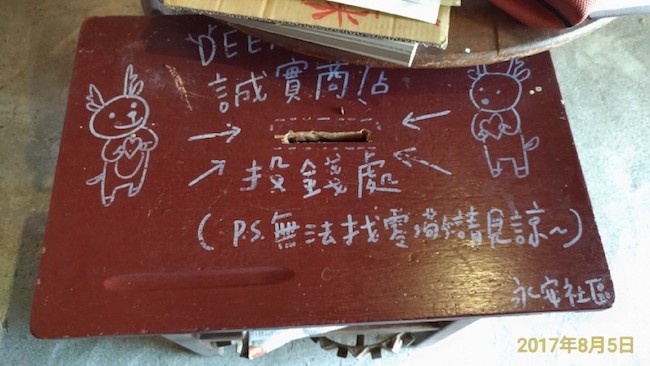 DEER
誠實商店
投錢處
(P.S.無法找零㗎請見諒~)
永安社區
2017年8月5日